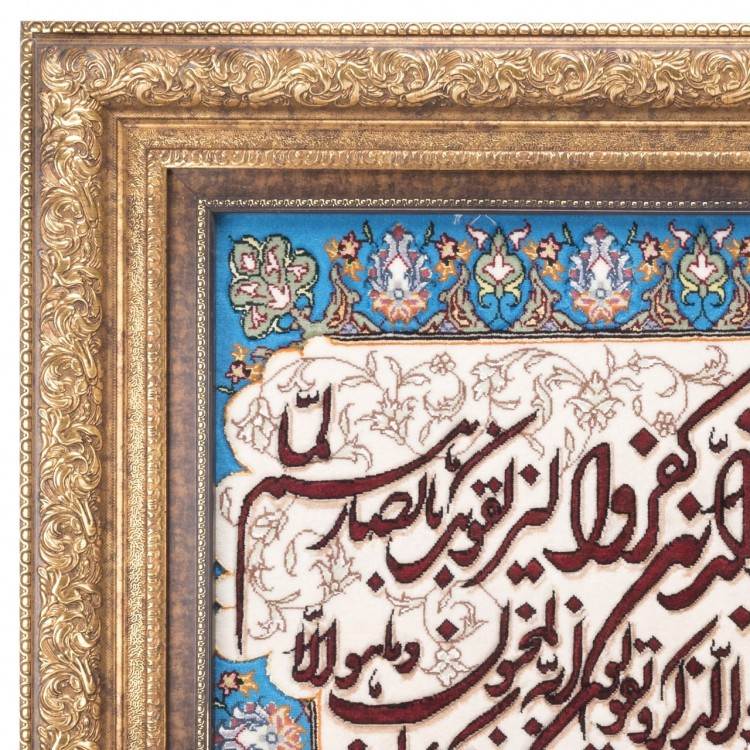 كفروا ليزلقونك بابصارهم لما
الذكر و يقولون انه لمجنون و ما هو الا